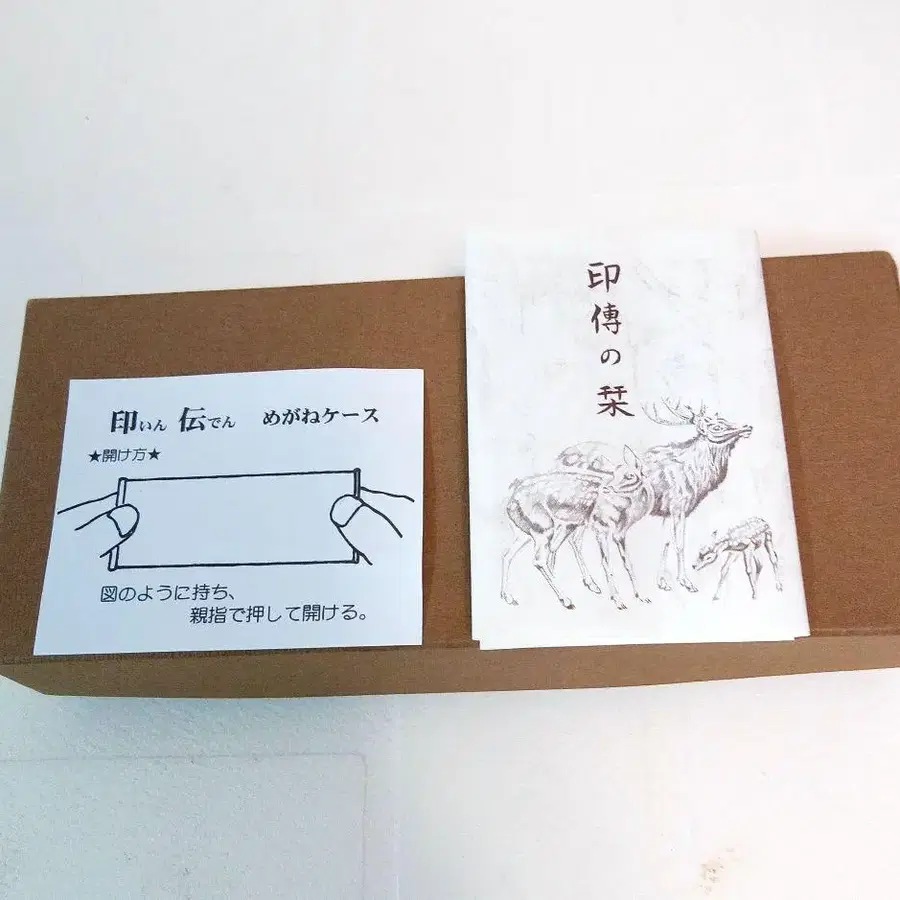 印いん 伝でん めがねケース
★開け方★
図のように持ち、
親指で押して開ける。
印傳の栞